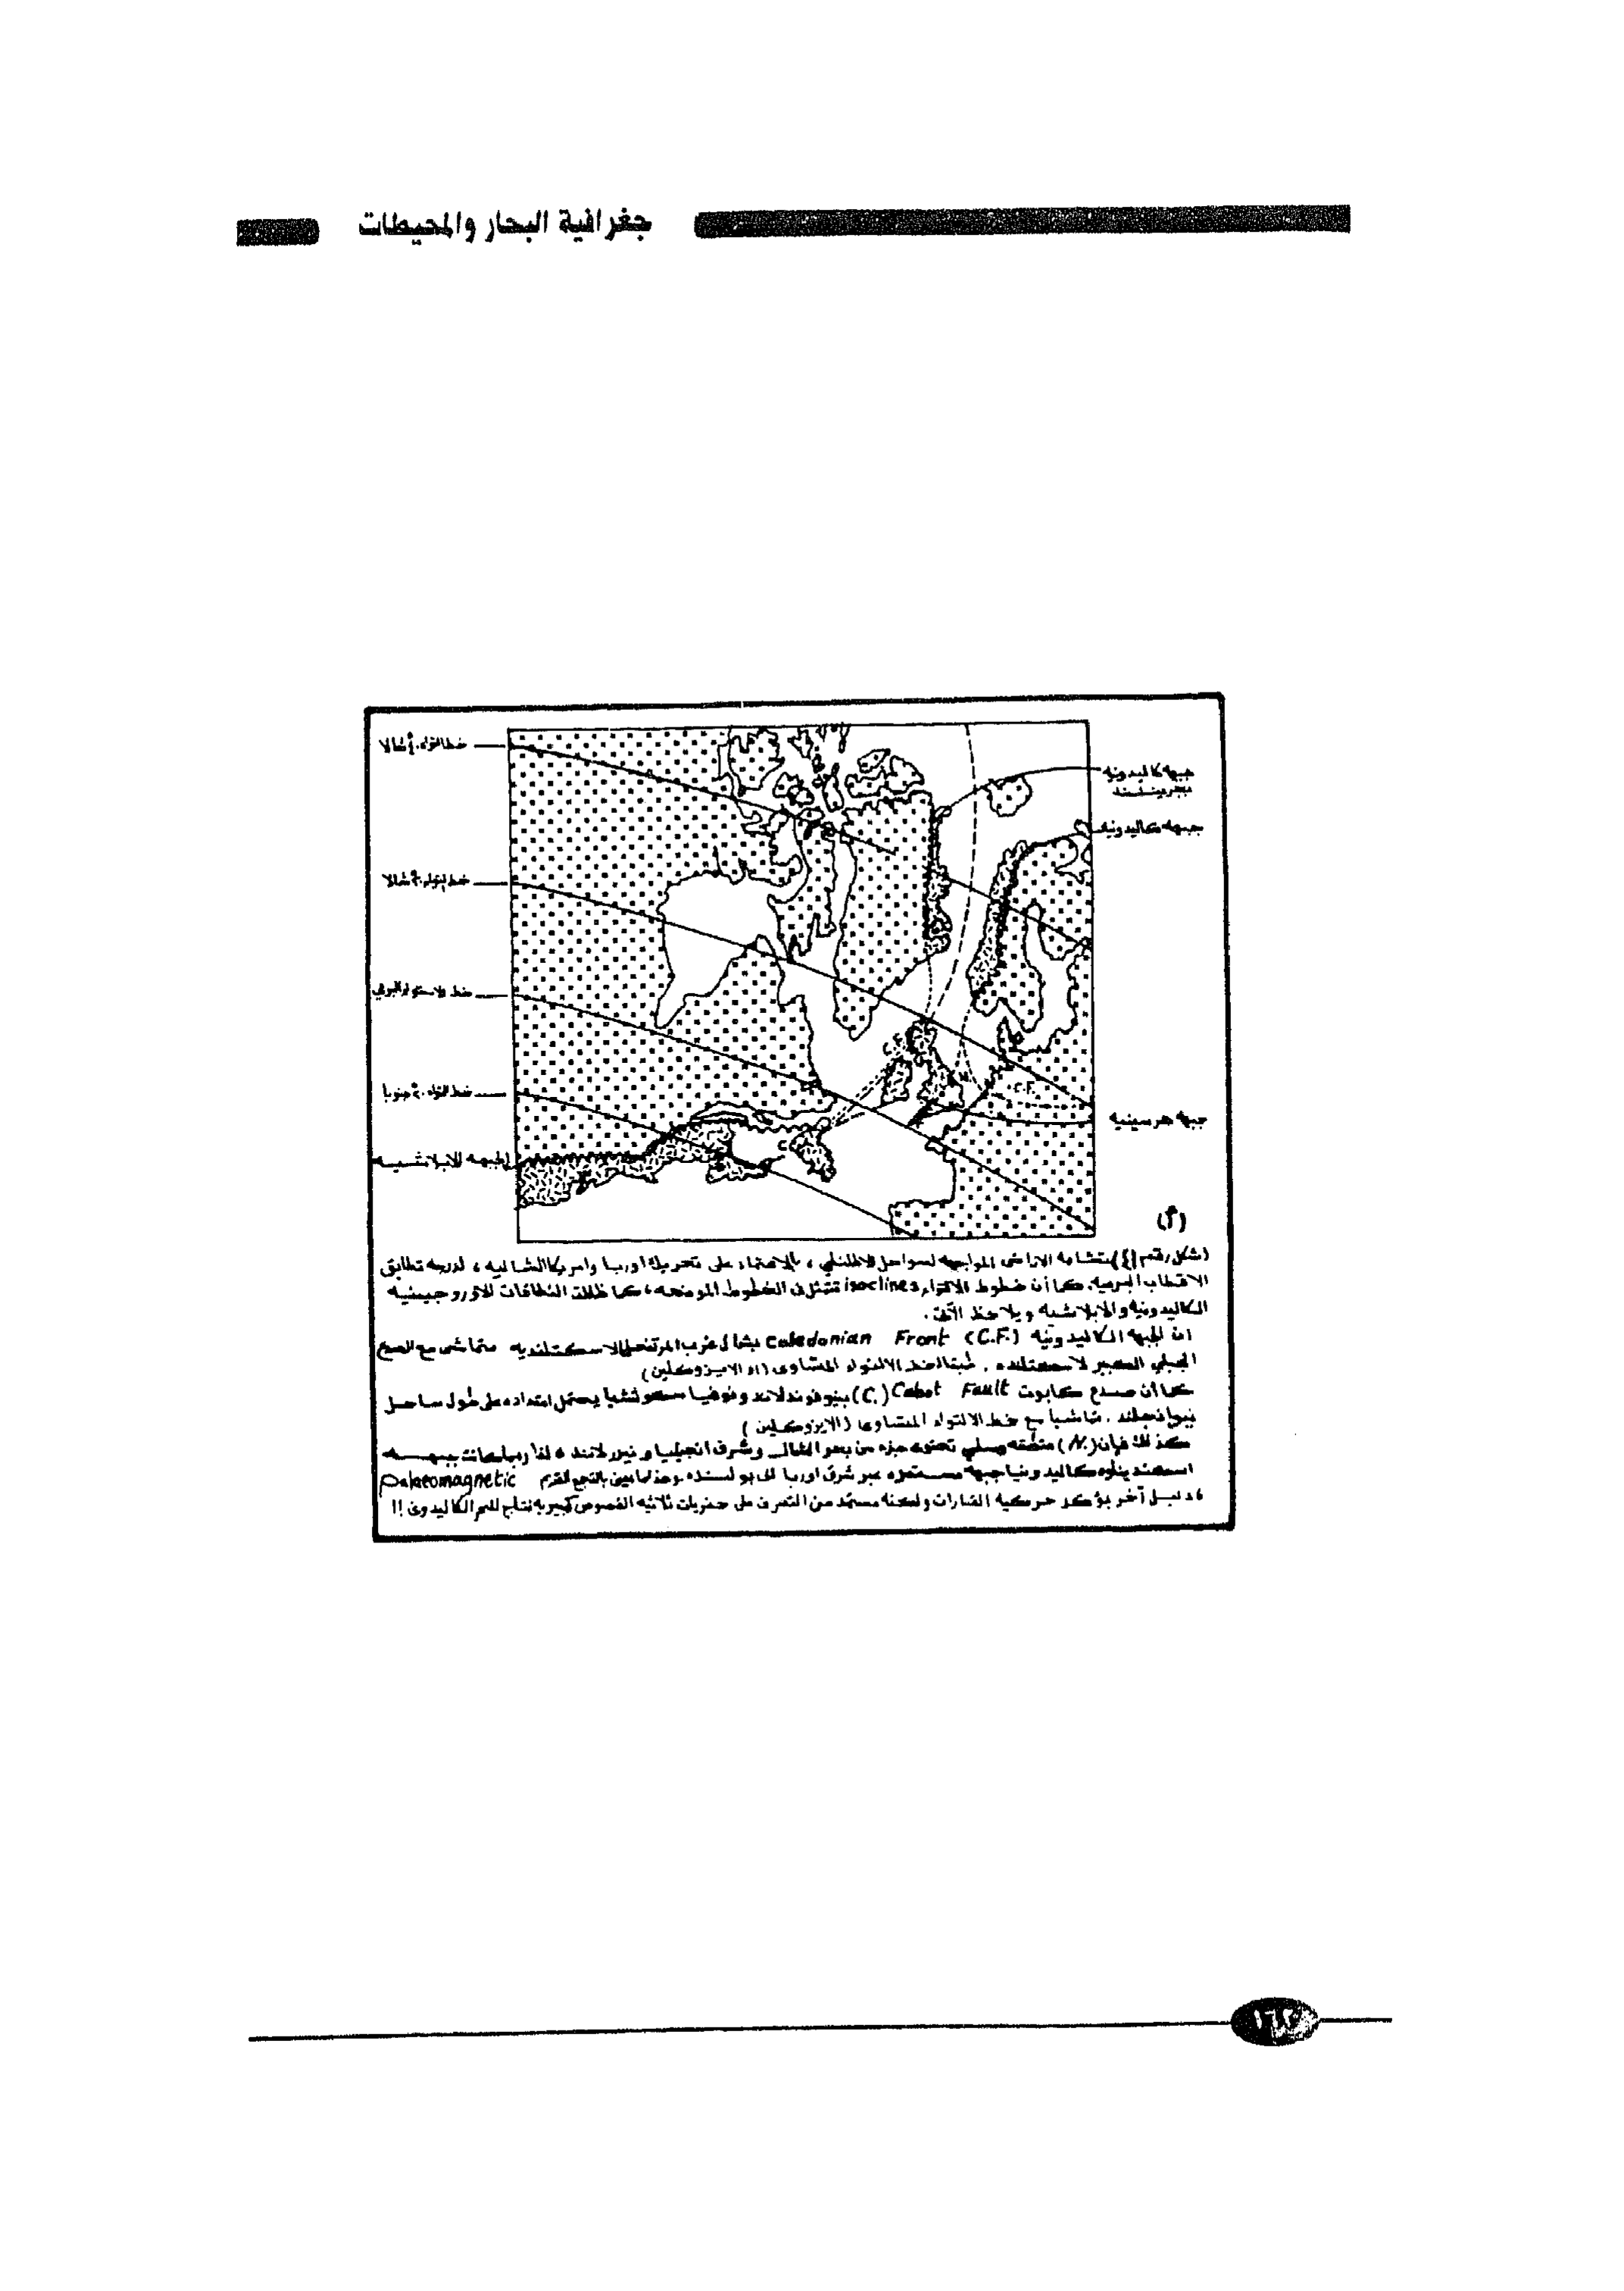 جغرافية البحار والمحيطات
جبهه كاليدونيه
بجرينلند
جبهه كاليدونيه
جبهه هرسينيه
خط التواء ٤٠ شمالا
خط التواء ٢٠ شمالا
خط الاستواء البرمي
خط التواء ٢٠ جنوبا
الجبهه الابلاشيه
C.F.
C.F.
N
C
(أ)
(شكل رقم ٤) تشابه الاراضى المواجهه لسواحل الاطلنطي ، بالاعتماد على تحريك اوربا وامريكا الشماليه ، لدرجه تطابق
الاقطاب البرميه. كما أن خطوط الالتواء isoclines تتمثل فى الخطوط الموضحه ، كما ظللت النطاقات الاوروجينيه
الكاليدونيه والابلاشيه ويلاحظ الآتى .
ان الجبهه الكاليدونيه (C.F.) Caledonian Front بشمال غرب المرتفعات الاسكتلنديه متماشى مع الصدع
الجبلي الكبير لاسكتلنده . طبقا لخط الالتواء المتساوى (او الايزوكلين)
كما أن صدع كابوت Cabot Fault (C.) بنيوفوندلاند ونوفيا سكوتشيا يحتمل امتداده على طول ساحل
نيوانجلند . متماشيا مع خط الالتواء المتساوى (الايزوكلين)
كذلك فإن (N.) منطقه وسطي تحتوى جزء من بحر الشمال وشرق انجيليا و نيزرلاند ، لذا ربما كانت جبهه
اسكنديناوه كاليدونيا جبهه مستمره عبر شرق اوربا الى بولنده . وهذا ما يبين بالتتبع القديم Palaeomagnetic
، دليل آخر يؤكد حركية القارات ولكنه مستمد من التعرف على حفريات ثلاثيه الفصوص كبيره نتاج للبحر الكاليدونى !!
١٦٢